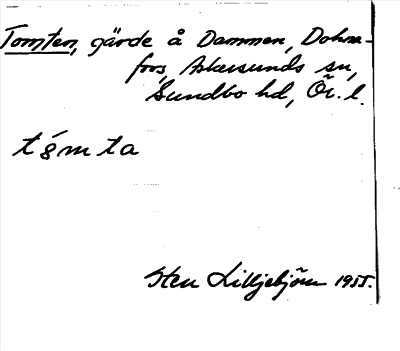 Tomten, gärde å Dammen, Dohna-
fors, Askersunds sn,
Sundbo hd, Ör. l.
tómta
Sten Lilljebjörn 1955.